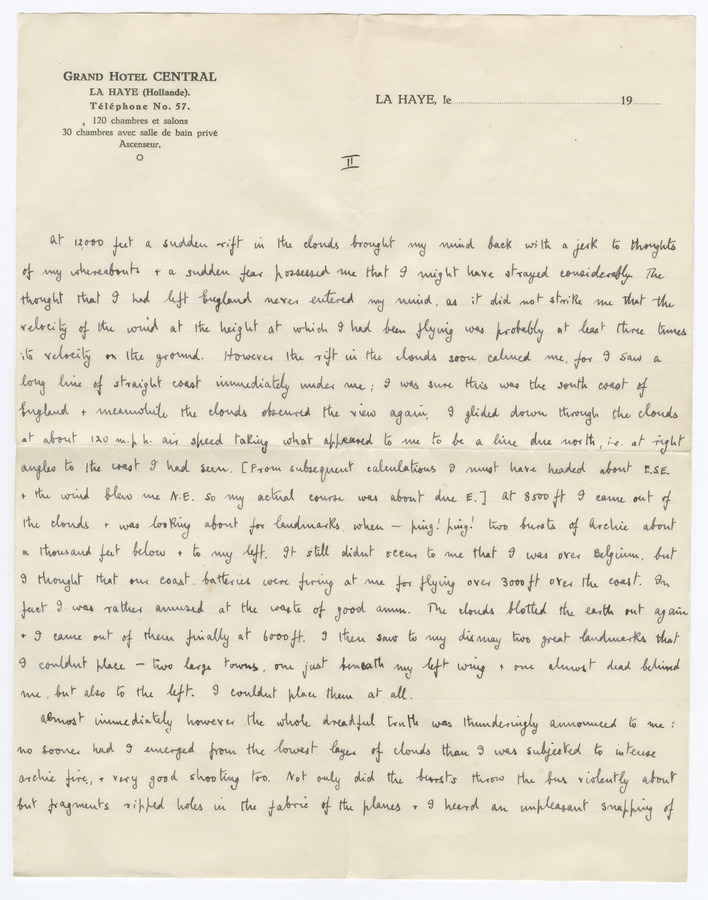 GRAND HOTEL CENTRAL
LA HAYE (Hollande).
Téléphone No. 57.
120 chambres et salons
30 chambres avec salle de bain privé
Ascenseur.
LA HAYE, le 19
II
At 12,000 feet a sudden rift in the clouds brought my mind back with a jerk to thoughts
of my whereabouts + a sudden fear possessed me that I might have strayed considerably. The
thought that I had left England never entered my mind, as it did not strike me that the
velocity of the wind at the height at which I had been flying was probably at least three times
its velocity on the ground. However the rift in the clouds soon calmed me, for I saw a
long line of straight coast immediately under me; I was sure this was the south coast of
England + meanwhile the clouds obscured the view again. I glided down through the clouds
at about 120 m.p.h. air speed taking what appeared to me to be a line due north, i.e. at right
angles to the coast I had seen. [From subsequent calculations I must have headed about E.S.E.
+ the wind blew me N.E. so my actual course was about due E.] At 8500 ft I came out of
the clouds + was looking about for landmarks, when — ping! ping! two bursts of Archie about
a thousand feet below + to my left. It still didnt occur to me that I was over Belgium, but
I thought that our coast batteries were firing at me for flying over 3000 ft over the coast. In
fact I was rather amused at the waste of good amm. The clouds blotted the earth out again
+ I came out of them finally at 6000 ft. I then saw to my dismay two great landmarks that
I couldnt place — two large towns, one just beneath my left wing + one almost dead behind
me, but also to the left. I couldnt place them at all.
Almost immediately however the whole dreadful truth was thunderingly announced to me:
no sooner had I emerged from the lowest layer of clouds than I was subjected to intense
archie fire, + very good shooting too. Not only did the bursts throw the bus violently about
but fragments ripped holes in the fabric of the planes + I heard an unpleasant snapping of